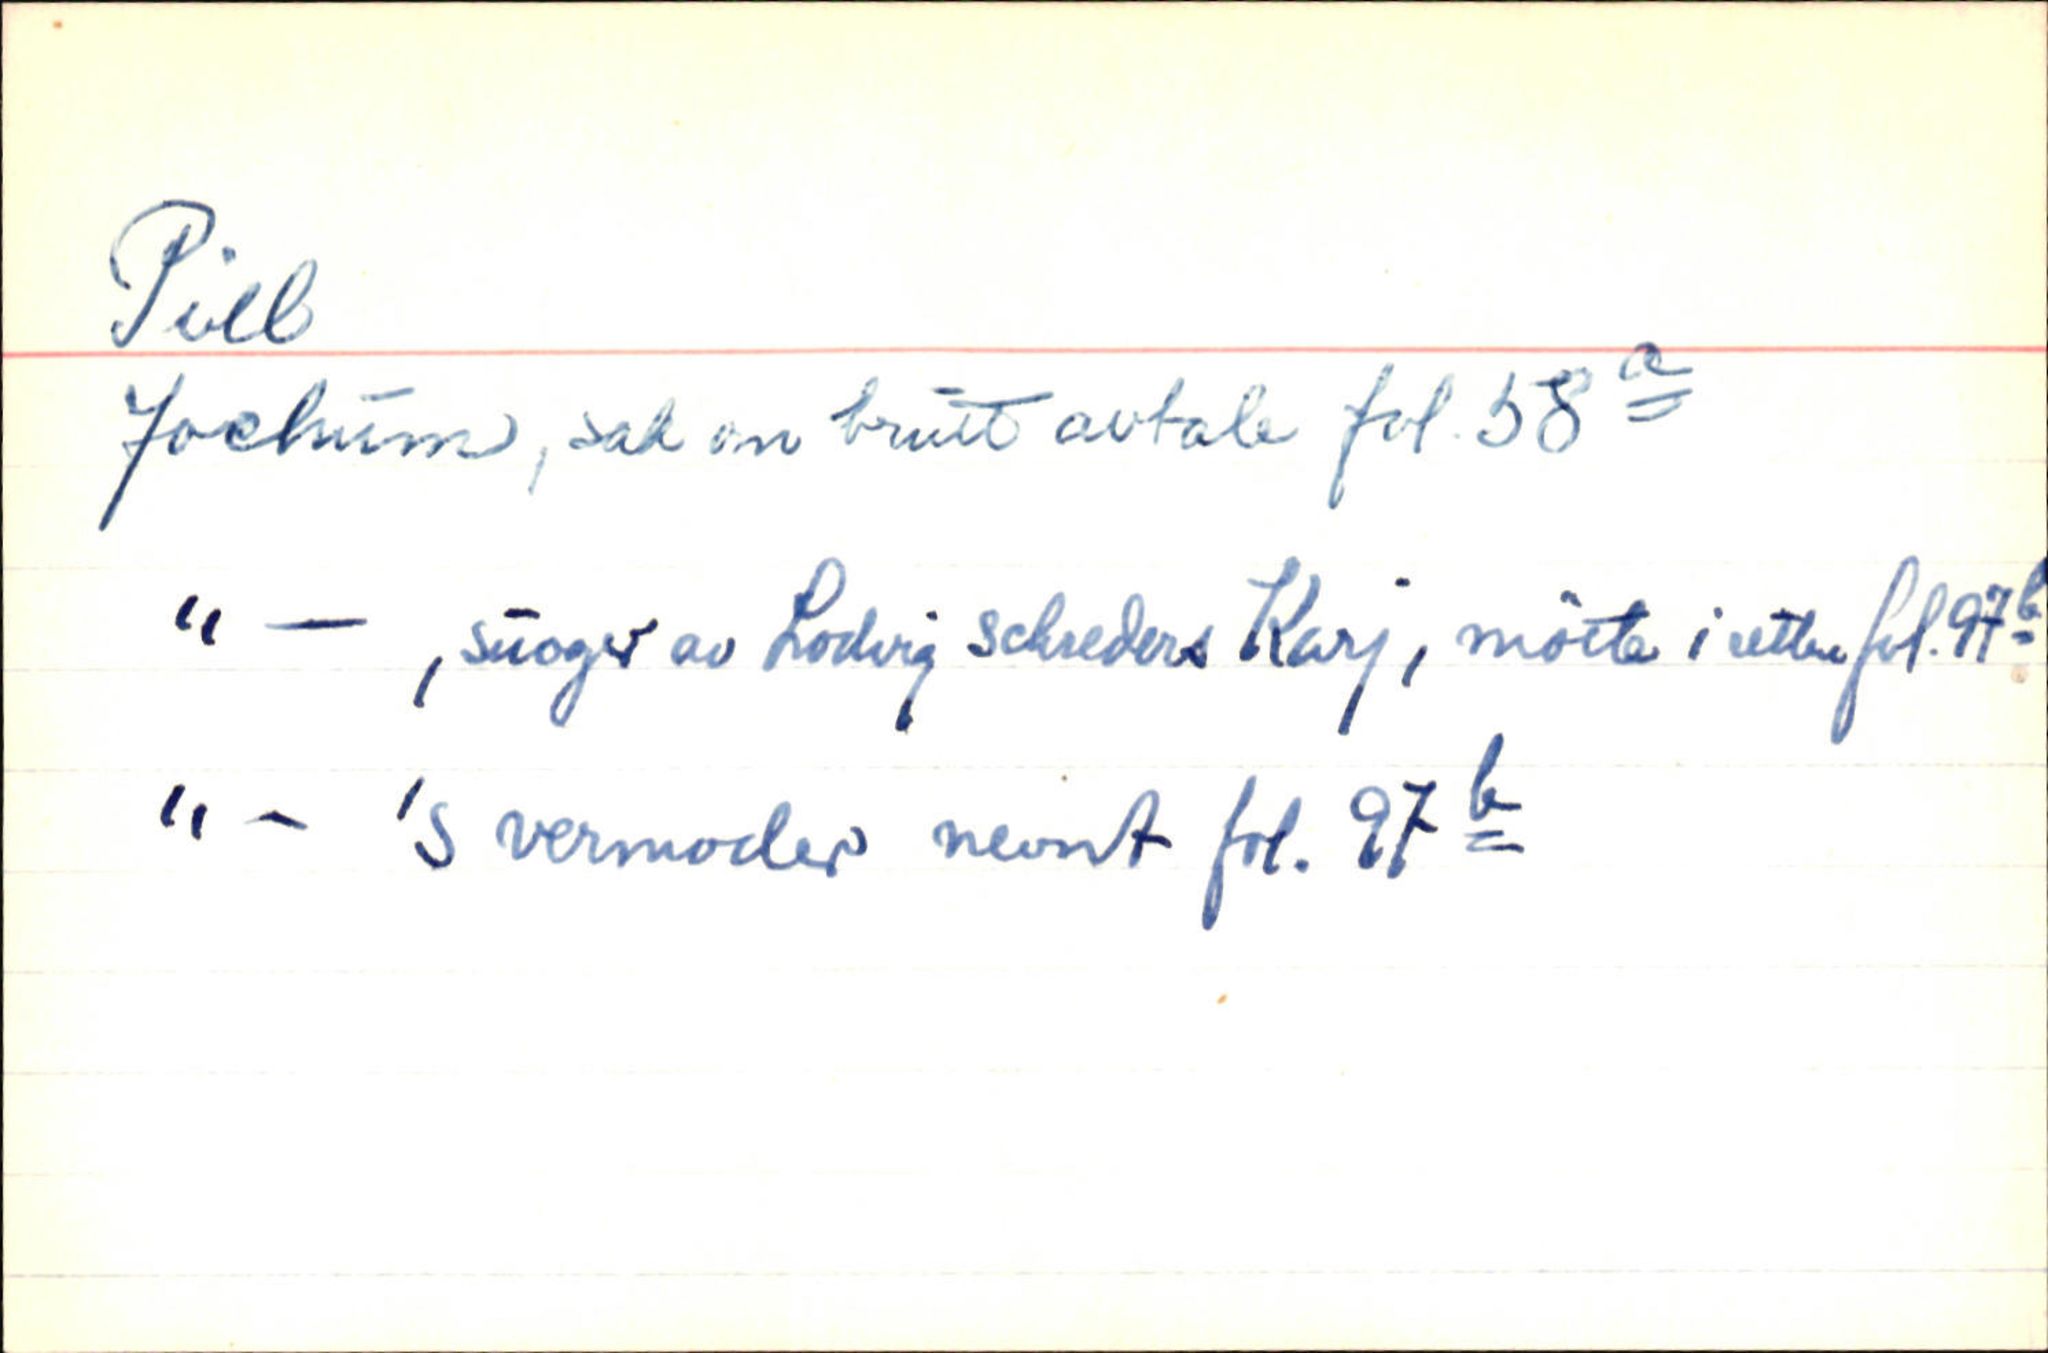 Pill
Jochum, sak om brutt avtale fol. 58 a
" — , svoger av Lodvig schreders Karj, mötte i retten fol. 97 b
" - 's vermoder nevnt fol. 97 b